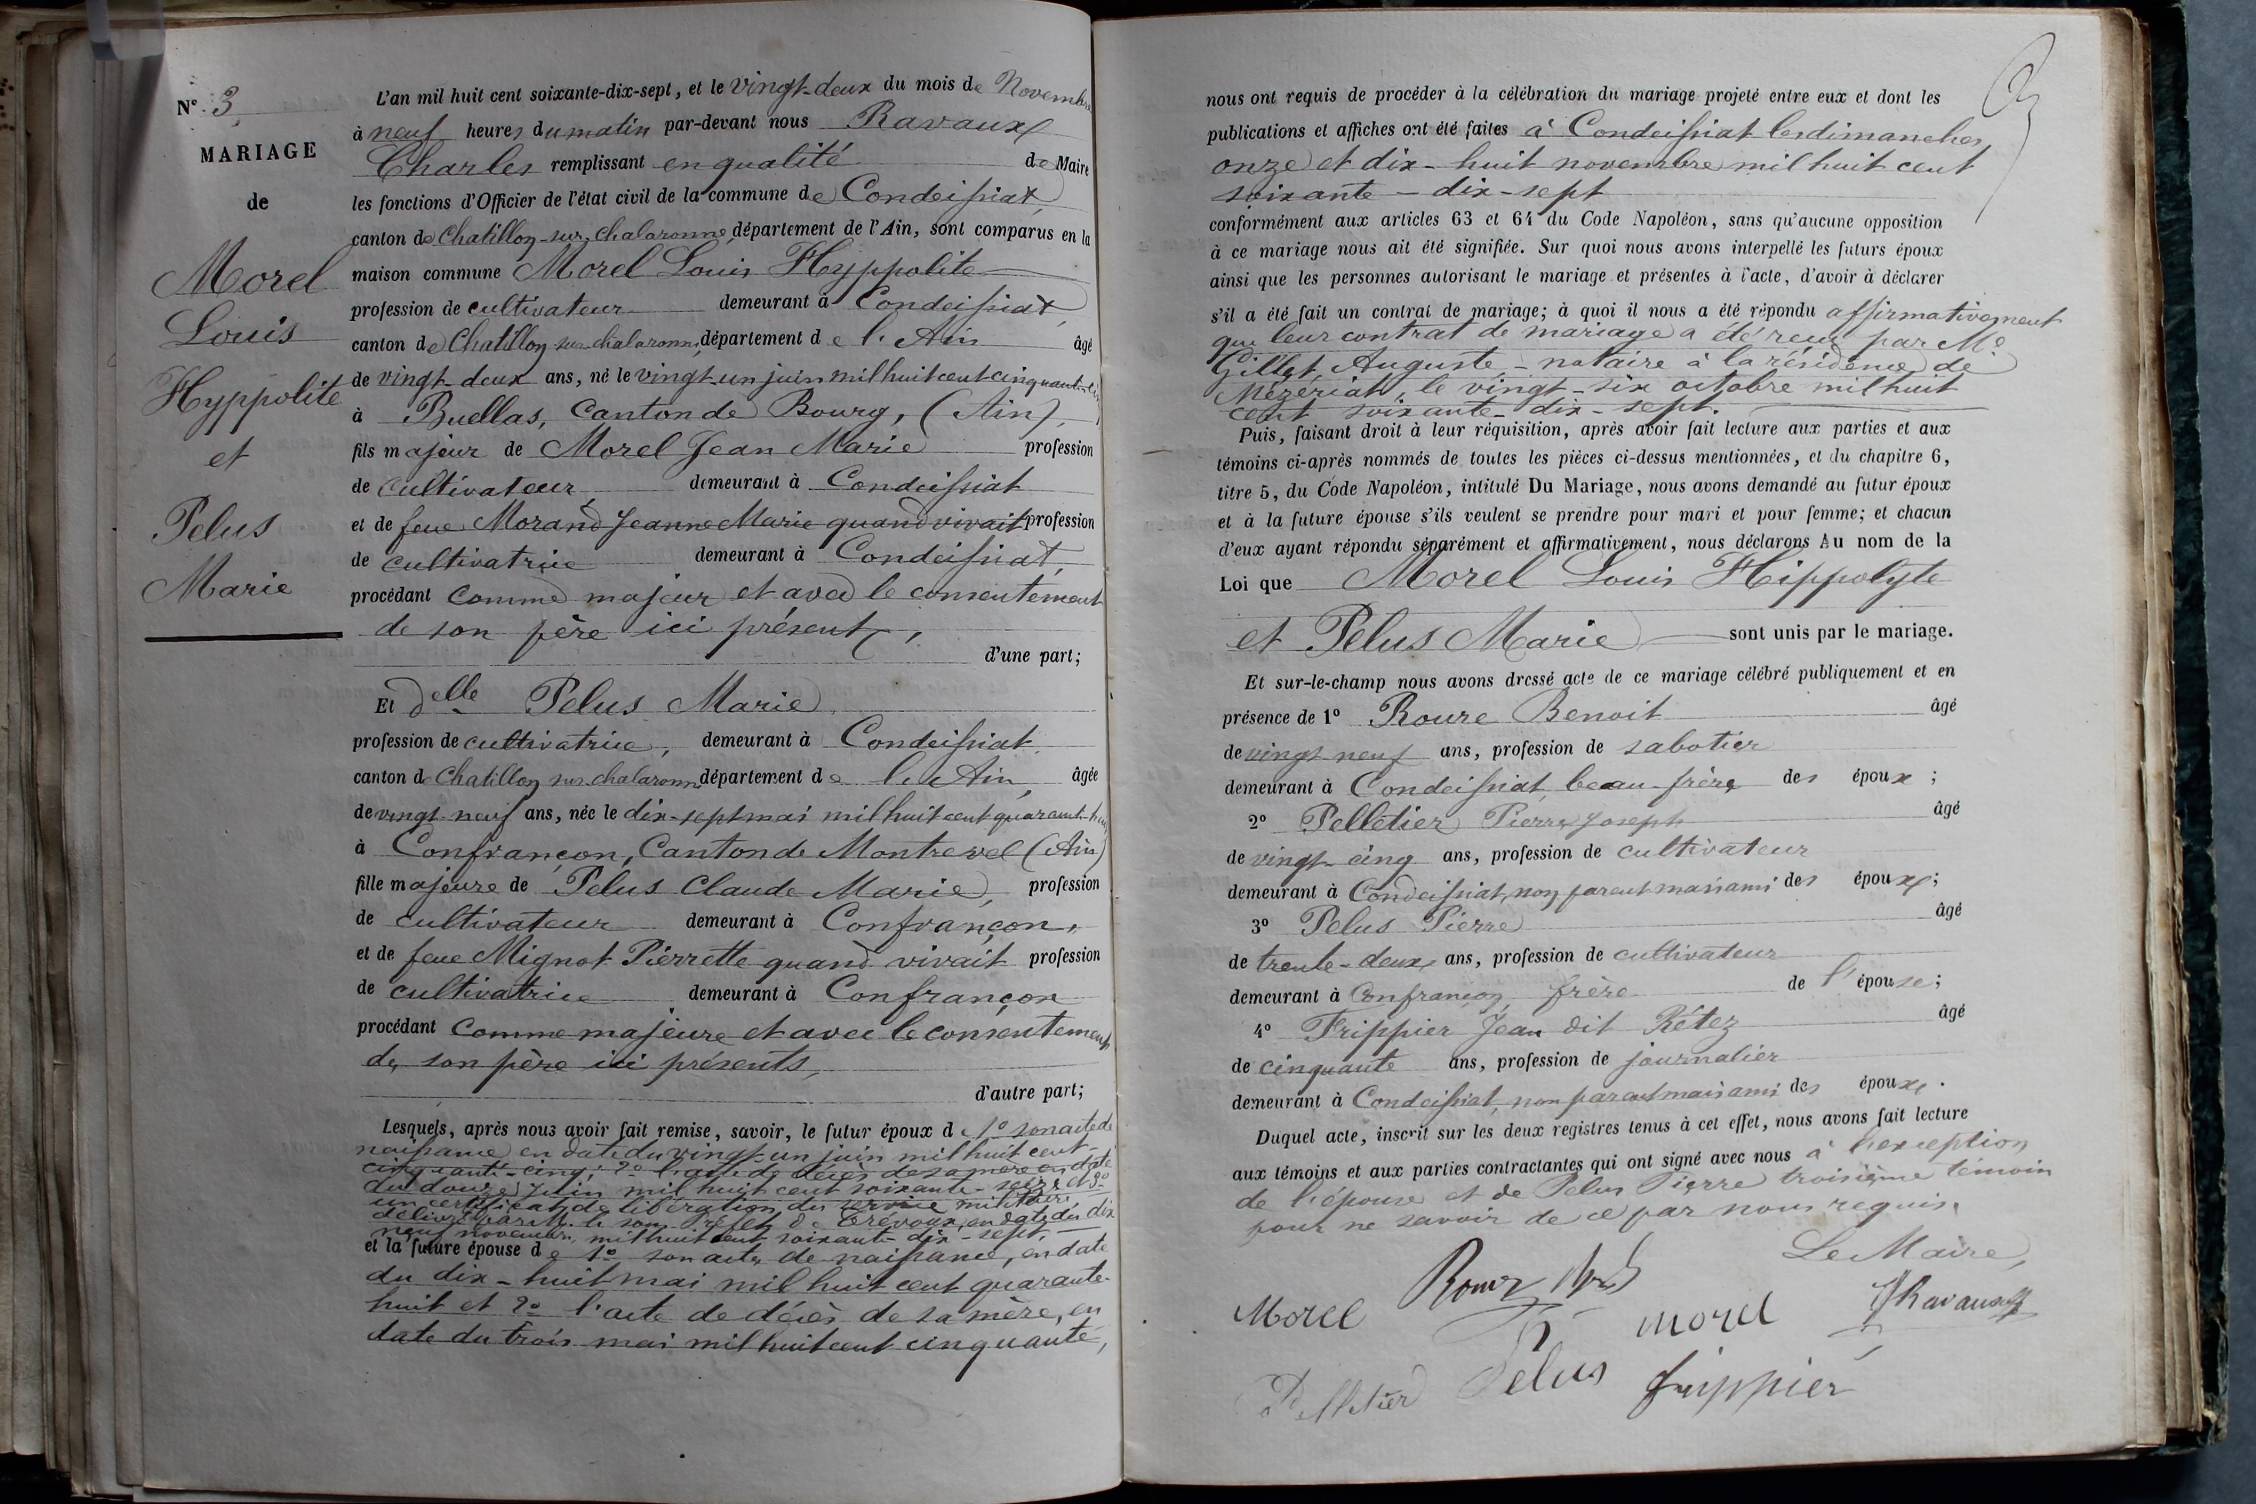 N° 3
MARIAGE
de
Morel
Louis
Hyppolite
et
Pelus
Marie
L'an mil huit cent soixante-dix-sept, et le vingt-deux du mois de Novembre
à neuf heures du matin par-devant nous Ravaux
Charles remplissant en qualité de Maire
les fonctions d'Officier de l'état civil de la commune de Condeissiat,
canton de Chatillon-sur-chalaronne, département de l'Ain, sont comparus en la
maison commune Morel Louis Hyppolite
profession de cultivateur demeurant à Condeissiat,
canton de Chatillon sur chalaronne, département de l'Ain âgé
de vingt-deux ans, né le vingt-un juin mil huit cent cinquante-cinq
à Buellas, Canton de Bourg, (Ain),
fils majeur de Morel Jean Marie profession
de cultivateur, demeurant à Condeissiat
et de feue Morand Jeanne Marie quand vivait profession
de cultivatrice demeurant à Condeissiat,
procédant comme majeur et avec le consentement
de son père ici présent,
d'une part;
Et delle Pelus Marie
profession de cultivatrice, demeurant à Condeissiat,
canton de Chatillon sur chalaronne département de l'Ain, âgée
de vingt neuf ans, née le dix-sept mai mil huit cent quarante-huit
à Confrançon, Canton de Montrevel (Ain)
fille majeure de Pelus Claude Marie, profession
de cultivateur demeurant à Confrançon,
et de feue Mignot Pierrette quand vivait profession
de cultivatrice demeurant à Confrançon
procédant comme majeure et avec le consentement
de son père ici présents,
d'autre part;
Lesquels, après nous avoir fait remise, savoir, le futur époux de 1° son acte de
naissance en date du vingt-un juin mil huit cent-
cinquante-cinq; 2° l'acte de décès de sa mère en date
du douze juin mil huit cent soixante-seize et 3°
un certificat de libération du service militaire
délivré par M. le sous Préfet de Trévoux, en date du dix
neuf novembre, mil huit cent soixante-dix-sept,
et la future épouse de 1° son acte de naissance, en date
du dix-huit mai mil huit cent quarante-
huit et 2° l'acte de décès de sa mère, en
date du trois mai mil huit cent cinquante,
nous ont requis de procéder à la célébration du mariage projeté entre eux et dont les
publications et affiches ont été faites à Condeissiat les dimanches
onze et dix-huit novembre mil huit cent
soixante-dix-sept
conformément aux articles 63 et 64 du Code Napoléon, sans qu'aucune opposition
à ce mariage nous ait été signifiée. Sur quoi nous avons interpellé les futurs époux
ainsi que les personnes autorisant le mariage et présentes à l'acte, d'avoir à déclarer
s'il a été fait un contrat de mariage; à quoi il nous a été répondu affirmativement
que leur contrat de mariage a été reçu par Me
Gillet, Auguste, notaire à la résidence de
Mézériat, le vingt-six octobre mil huit
cent soixante-dix-sept.
Puis, faisant droit à leur réquisition, après avoir fait lecture aux parties et aux
témoins ci-après nommés de toutes les pièces ci-dessus mentionnées, et du chapitre 6,
titre 5, du Code Napoléon, intitulé Du Mariage, nous avons demandé au futur époux
et à la future épouse s'ils veulent se prendre pour mari et pour femme; et chacun
d'eux ayant répondu séparément et affirmativement, nous déclarons Au nom de la
Loi que Morel Louis Hippolyte
et Pelus Marie sont unis par le mariage.
Et sur-le-champ nous avons dressé acte de ce mariage célébré publiquement et en
présence de 1° Roure Benoit âgé
de vingt neuf ans, profession de sabotier
demeurant à Condeissiat, beau-frère des époux;
2° Pelletier Pierre Joseph âgé
de vingt-cinq ans, profession de cultivateur
demeurant à Condeissiat, non parent mais ami des époux;
3° Pelus Pierre âgé
de trente-deux ans, profession de cultivateur
demeurant à Confrançon, frère de l'épouse;
4° Frippier Jean dit Rétez âgé
de cinquante ans, profession de journalier
demeurant à Condeissiat, non parent mais ami des époux.
Duquel acte, inscrit sur les deux registres tenus à cet effet, nous avons fait lecture
aux témoins et aux parties contractantes qui ont signé avec nous à l'exception
de l'épouse et de Pelus Pierre troisième témoin
pour ne savoir de ce par nous requis.
Le Maire,
Morel Roure morel Ravaux
Pelletier Pelus frippier